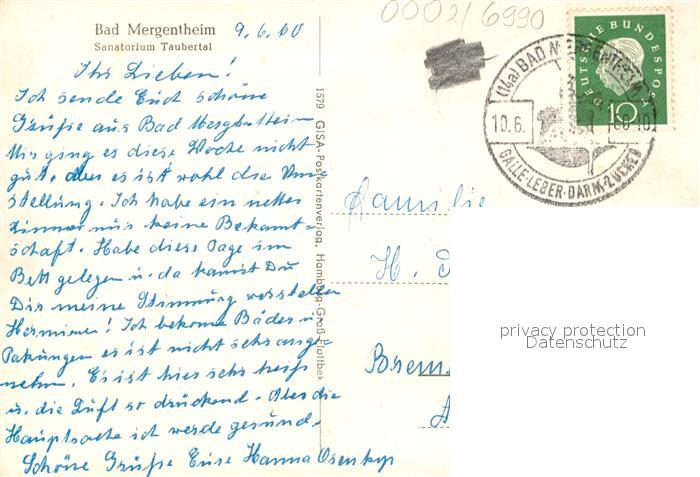 Bad Mergentheim
Sanatorium Taubertal
9.6.60
0002/6990
Ihr Lieben!
Ich sende Euch schöne
Grüße aus Bad Mergentheim
Mir ging es diese Woche nicht
gut, aber es ist wohl die Um-
stellung. Ich habe ein nettes
Zimmer nur keine Bekannt-
schaft. Habe diese Tage im
Bett gelegen u. da kannst Du
Dir meine Stimmung vorstellen
Hermine! Ich bekome Bäder u.
Pakungen es ist nicht sehr ange-
nehm. Es ist hier sehr heiß
u. die Luft so drückend. Aber die
Hauptsache ich werde gesund.
Schöne Grüße Eure Hanna
1579 GISA-Postkartenverlag, Hamburg-Groß Flottbek
DEUTSCHE BUNDESPOST
10
(14a) BAD MERGENTHEIM
10.6.
GALLE·LEBER·DARM·ZUCKER
Familie
H. D
Brem
privacy protection
Datenschutz